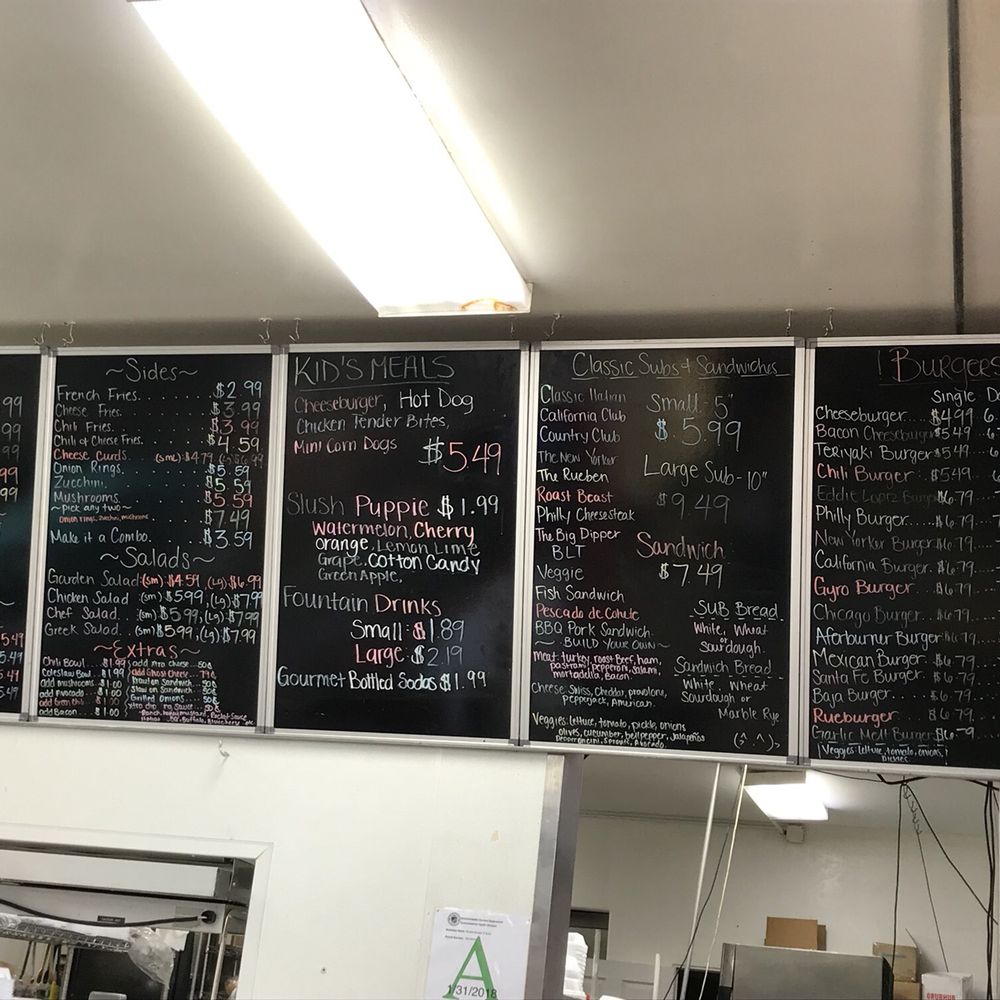 99
99
99
99
5.49
5.49
5.49
5.49
~Sides~
French Fries. $2.99
Cheese Fries. $3.99
Chili Fries. $3.99
Chili & Cheese Fries. $4.59
Cheese Curds. (sm) $4.79 (Lg) $6.99
Onion Rings. $5.59
Zucchini. $5.59
Mushrooms. $5.59
~pick any two~ $7.49
Onion rings, zucchini, mushrooms
Make it a Combo. $3.59
~Salads~
Garden Salad.(sm) $4.59, (Lg) $6.99
Chicken Salad (sm) $5.99, (Lg) $7.99
Chef Salad. (sm) $5.99, (Lg) $7.99
Greek Salad. (sm) $5.99, (Lg) $7.99
~Extras~
Chili Bowl. $1.99
Coleslaw Bowl. $1.99
add mushrooms. $1.00
add Avocado. $1.00
add Bacon. $1.00
add xtra cheese. 50¢
add Ghost Cheese. 79¢
Slaw on Sandwich. 50¢
Grilled Onions. 50¢
KID'S MEALS
Cheeseburger, Hot Dog
Chicken Tender Bites,
Mini Corn Dogs $5.49
Slush Puppie $1.99
Watermelon, Cherry
Orange, Lemon Lime
Grape, Cotton Candy
Green Apple,
Fountain Drinks
Small: $1.89
Large: $2.19
Gourmet Bottled Sodas $1.99
Classic Subs & Sandwiches
Classic Italian
California Club
Country Club
The New Yorker
The Rueben
Roast Beast
Philly Cheesesteak
The Big Dipper
BLT
Veggie
Fish Sandwich
Pescado de Cohute
BBQ Pork Sandwich
~BUILD YOUR OWN~
Meat: turkey, roast beef, ham,
pastrami, pepperoni, salami,
mortadella, bacon
Cheese: Swiss, Cheddar, provolone,
pepperjack, American.
Veggies: lettuce, tomato, pickle, onions
olives, cucumber, bell pepper, Jalapeños
Pepperoncini, Sprouts, Avocado.
Small - 5"
$5.99
Large Sub - 10"
$9.49
Sandwich
$7.49
SUB Bread
White, Wheat
or
sourdough.
Sandwich Bread
White, Wheat
Sourdough or
Marble Rye
(^.^)
! Burgers
Single D
Cheeseburger. $4.99 6
Bacon Cheeseburger $5.49 6
Teriyaki Burger $5.49 6
Chili Burger. $5.49 6
Eddie Lopez Burger $6.79
Philly Burger. $6.79 7
New Yorker Burger. $6.79
California Burger. $6.79
Gyro Burger. $6.79
Chicago Burger. $6.79
Afterburner Burger $6.79
Mexican Burger. $6.79
Santa Fe Burger. $6.79
Baja Burger. $6.79
Rueburger. $6.79
Garlic Melt Burger $6.79
Veggies: lettuce, tomato, onions,
pickles
A
1/31/2018
GRUBHUB